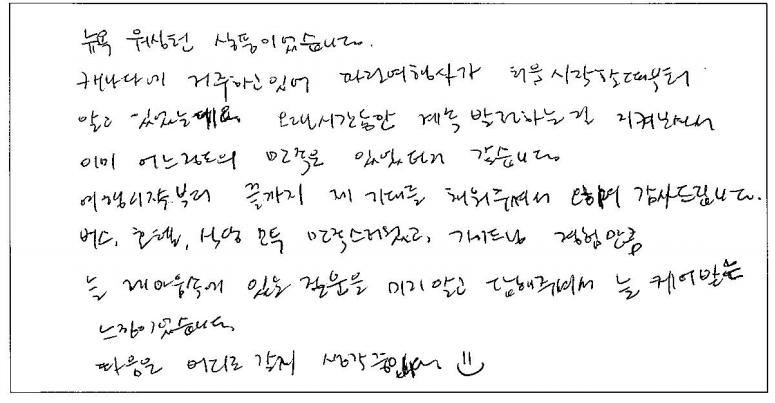 뉴욕 워싱턴 상품이었습니다.
캐나다에 거주하고있어 파란여행사가 처음 시작할때부터
알고 있었는데요. 오랜시간동안 계속 발전하는걸 지켜봐서
이미 어느정도의 만족은 있었던거 같습니다.
여행시작부터 끝까지 제 기대를 채워주셔서 감사드립니다.
버스, 호텔, 식당 모두 만족스러웠고, 가이드님 경험만큼
늘 제마음속에 있는 질문을 미리 알고 답해주셔서 늘 케어받는
느낌이었습니다.
다음은 어디로 갈지 생각중입니다. ☺